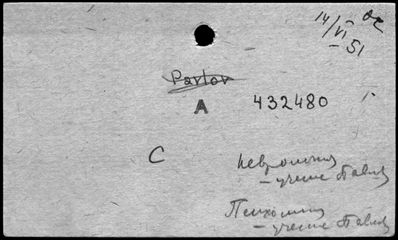 14/VI
- 51
Pavlov
A
432480
C
Неврология
- учение Павл
Психология
- учение Павл